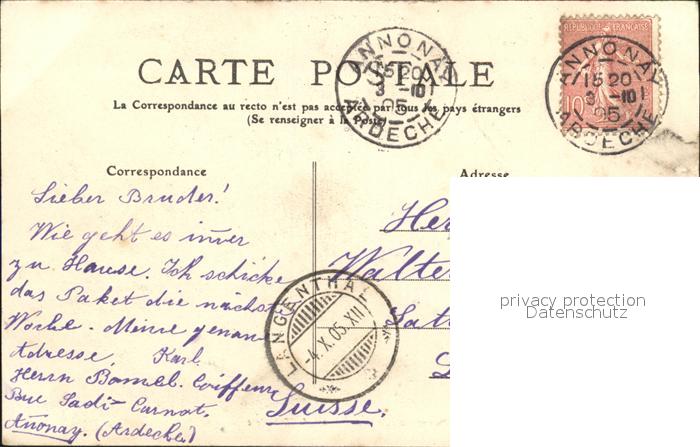 CARTE POSTALE
La Correspondance au recto n'est pas acceptée par tous les pays étrangers
(Se renseigner à la Poste)
ANNONAY
15 20
3 -10
05
ARDECHE
REPUBLIQUE FRANÇAISE
10
ANNONAY
15 20
3 -10
05
ARDECHE
Correspondance
Adresse
Lieber Bruder!
Wie geht es immer
zu Hause. Ich schicke
das Paket die nächste
Woche. Meine genaue
Adresse, Karl
Herrn Coiffeur
Rue Sadi-Carnot.
Annonay. (Ardeche)
Her
Walter
Suisse.
LANGENTHAL
-4.X.05.XII
privacy protection
Datenschutz